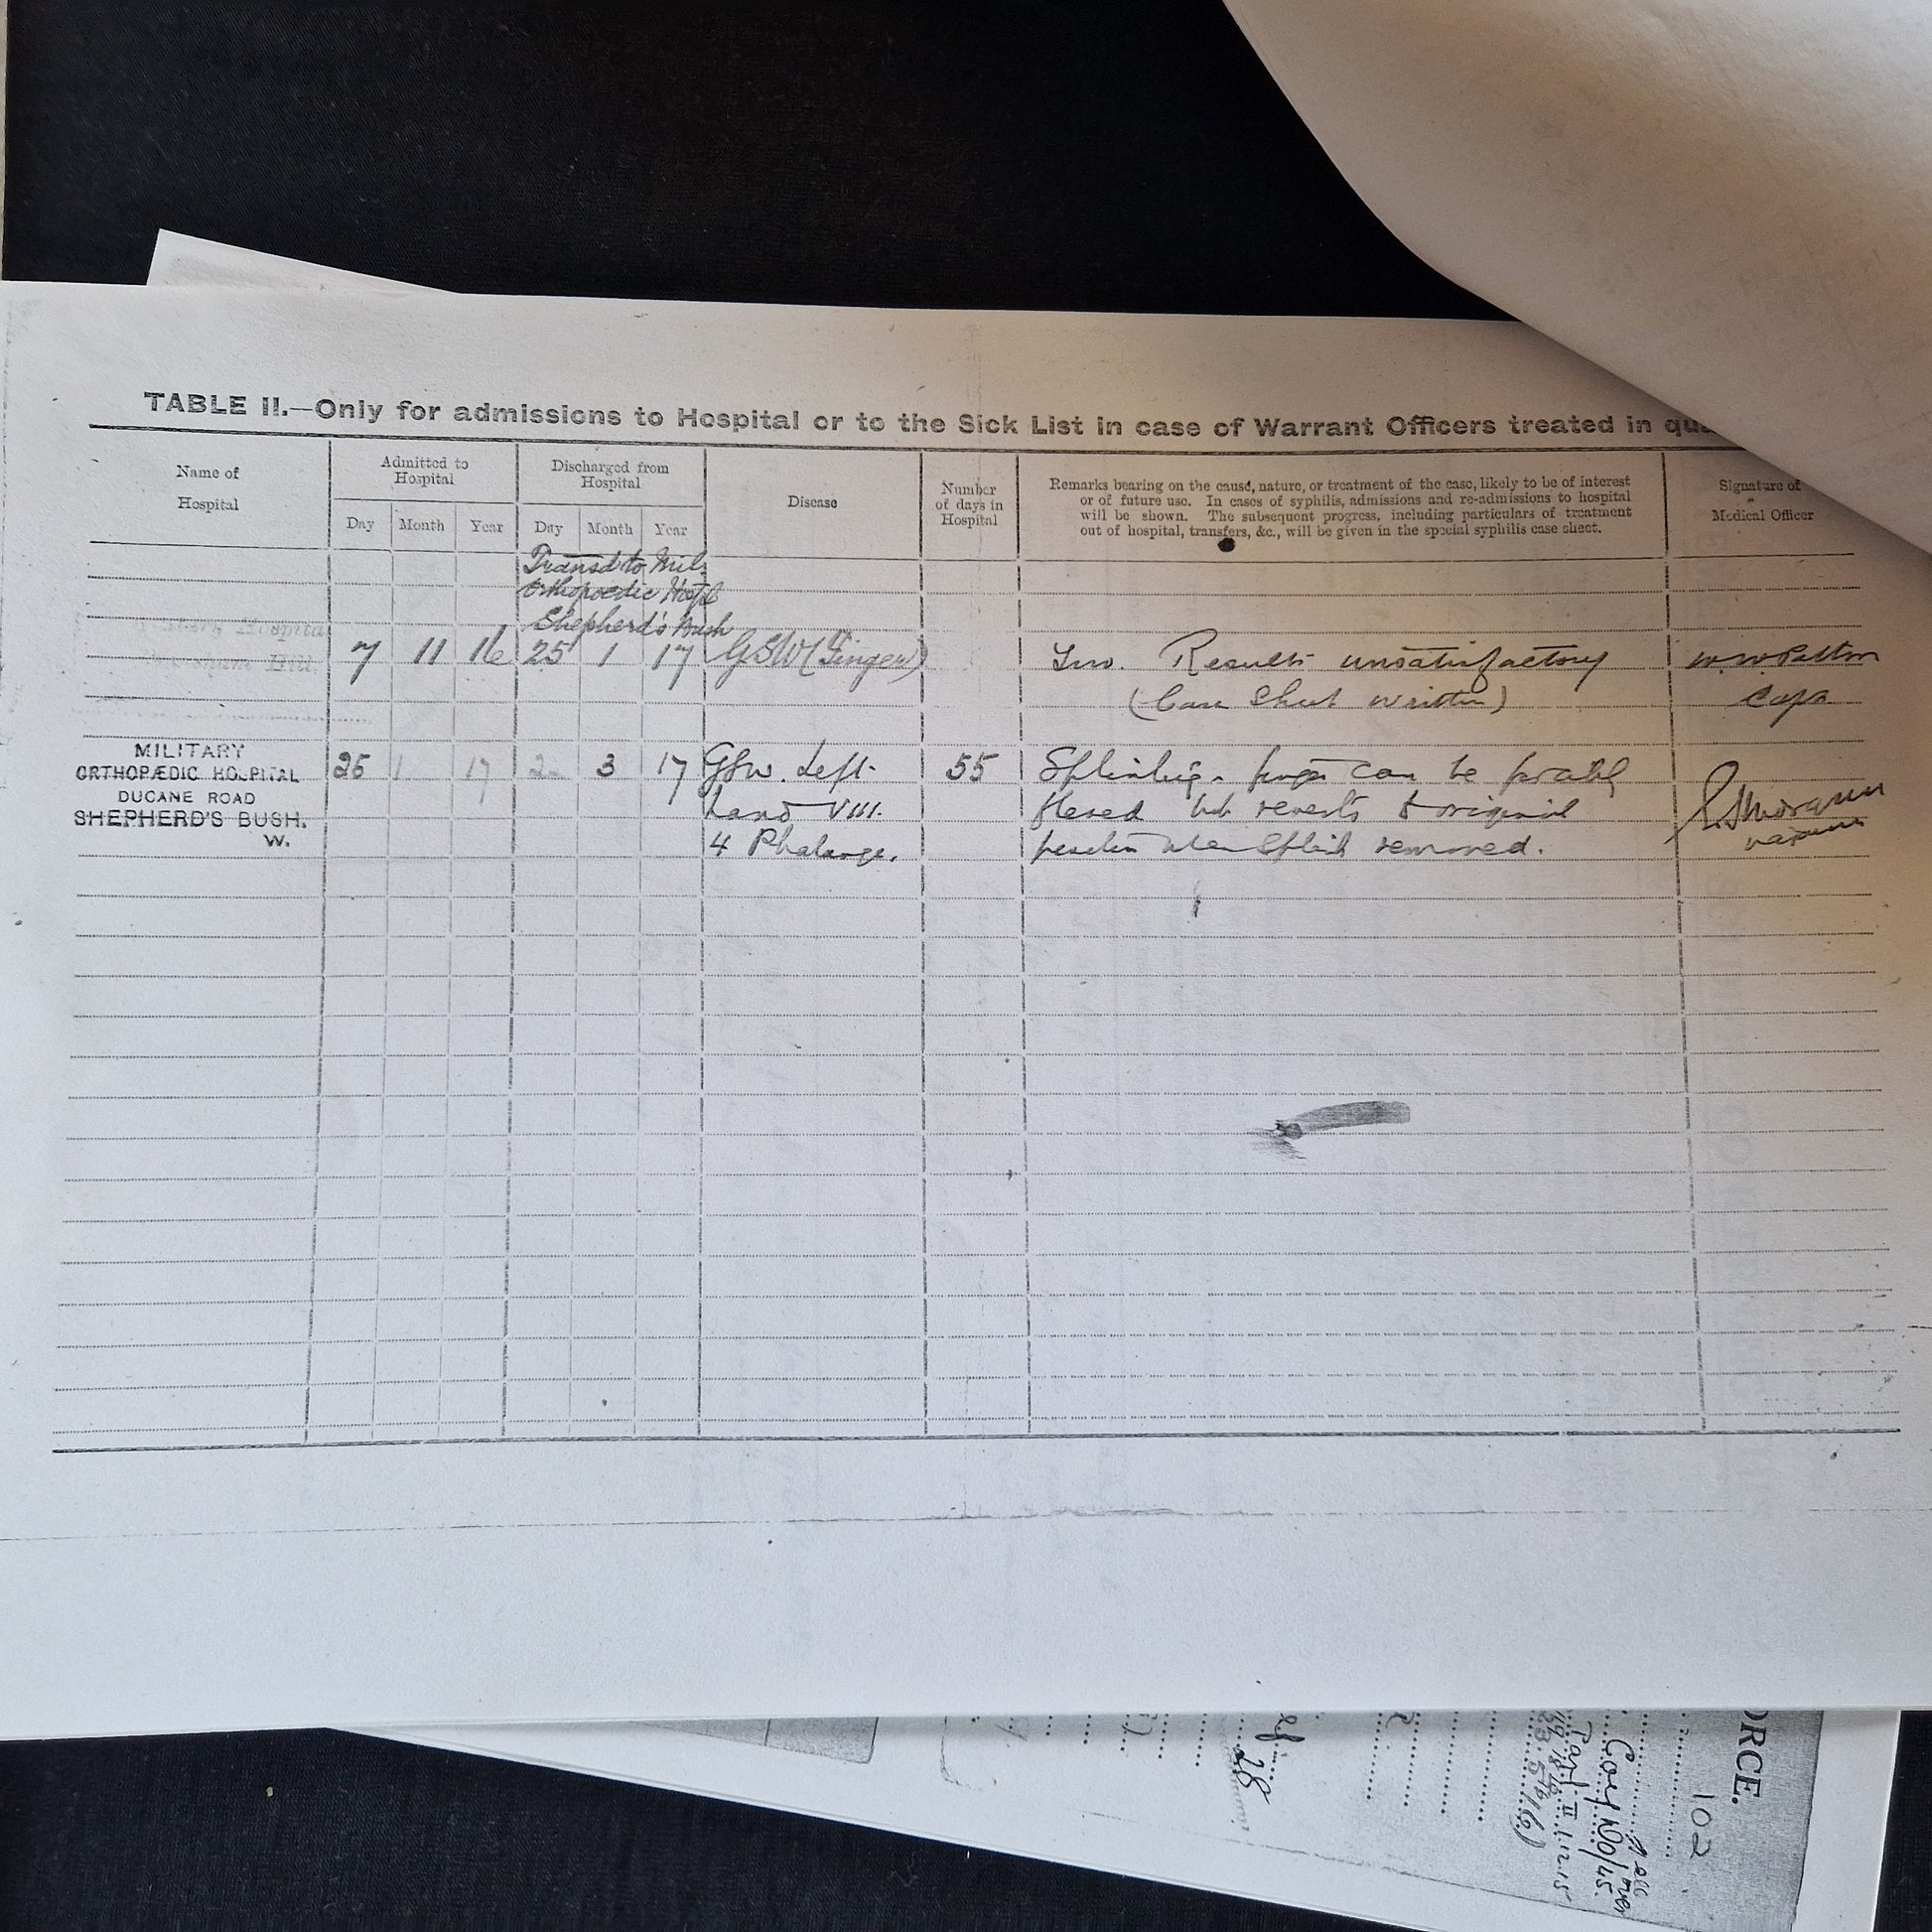 TABLE II.—Only for admissions to Hospital or to the Sick List in case of Warrant Officers treated in
Name of
Hospital
Admitted to
Hospital
Day Month Year
Discharged from
Hospital
Day Month Year
Disease
Number
of days in
Hospital
Remarks bearing on the cause, nature, or treatment of the case, likely to be of interest
or of future use. In cases of syphilis, admissions and re-admissions to hospital
will be shown. The subsequent progress, including particulars of treatment
out of hospital, transfers, &c., will be given in the special syphilis case sheet.
Signature of
Medical Officer
Transd to Mil.
Orthopoedic Hospl
Shepherd's Bush
Hospital
7 11 16 25 1 17 GSW (Finger) Results unsatisfactory
(Case Sheet written)
Capt
MILITARY
ORTHOPÆDIC HOSPITAL
DUCANE ROAD
SHEPHERD'S BUSH.
W.
25 1 17 3 17 GSW. Left 55 finger can be
hand VIII. flexed but reverts to original
4 Phalange. position when splint removed.
28
ORCE.
102